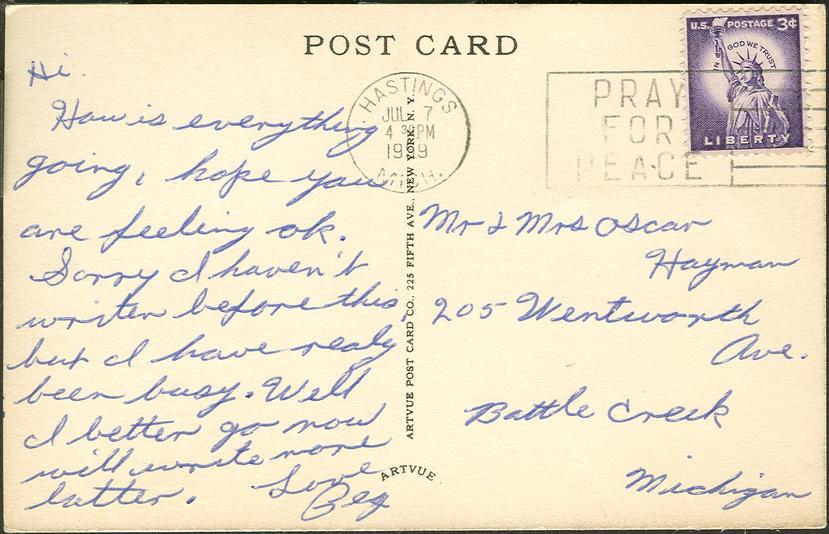 POST CARD
Hi.
How is everything
going, hope you
are feeling ok.
Sorry I haven't
writen before this,
but I have realy
been busy. Well
I better go now
will write more
latter. Love
Peg
HASTINGS
JUL 7
4 30 PM
1959
MICH.
PRAY
FOR
PEACE
U.S. POSTAGE 3¢
IN GOD WE TRUST
LIBERTY
ARTVUE POST CARD CO., 225 FIFTH AVE., NEW YORK, N. Y.
ARTVUE
Mr & Mrs Oscar
Hayman
205 Wentworth
Ave.
Battle Creek
Michigan